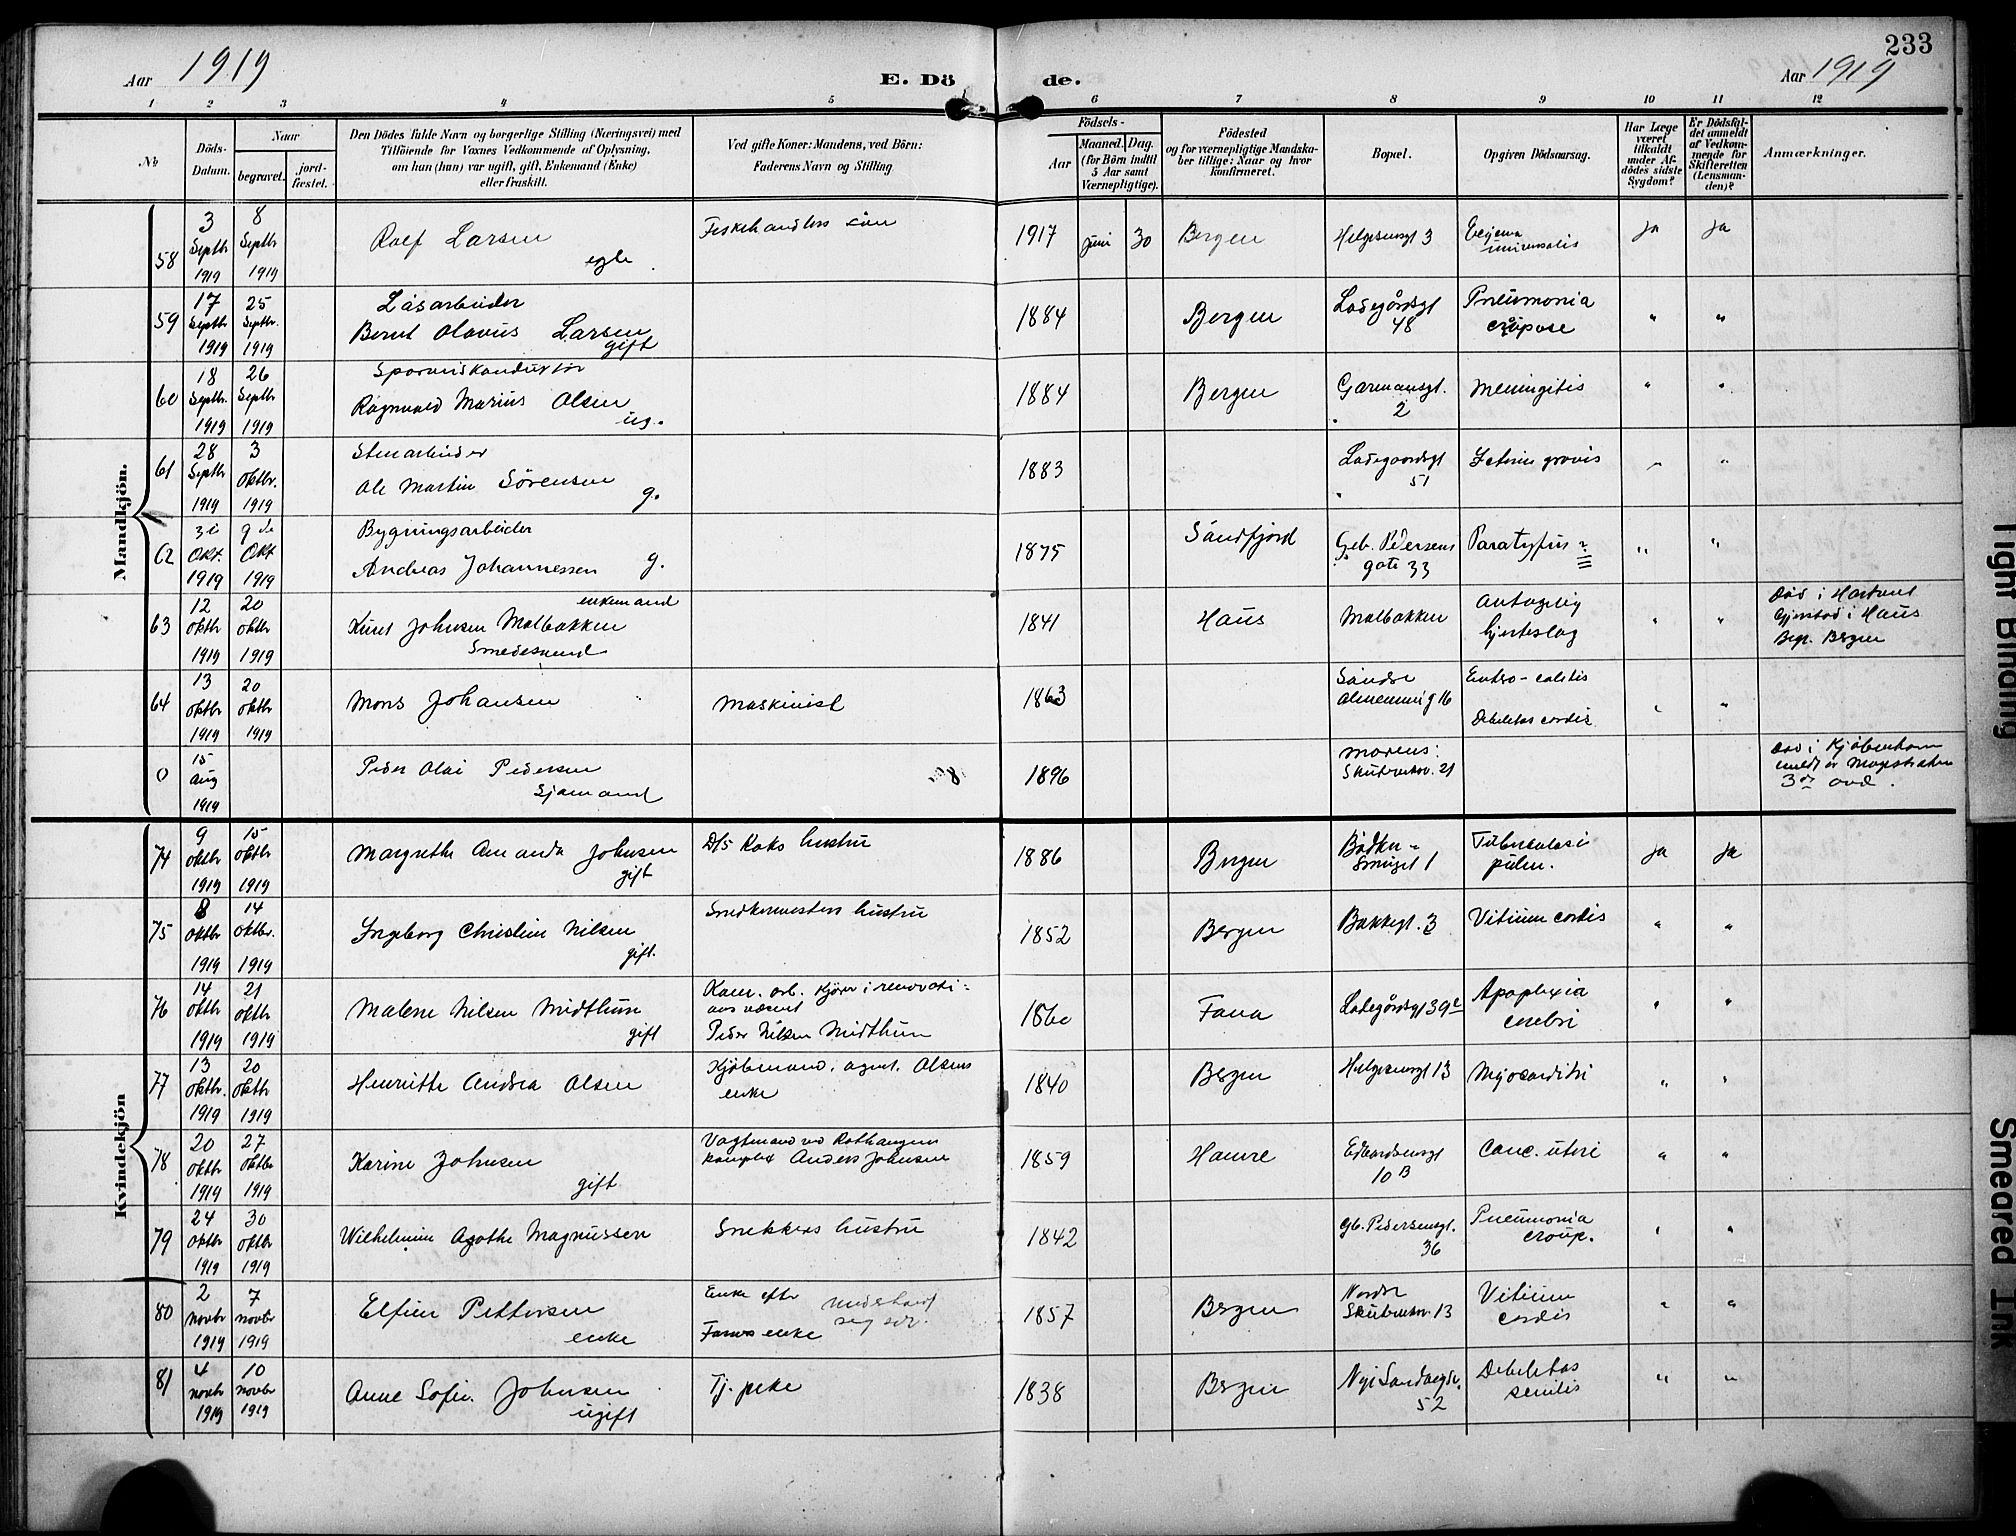 233
Aar 1919
E. Dö de.
Aar 1919
1 2 3 4 5 6 7 8 9 10 11 12
Nb
Döds-
Datum.
Naar
begravet.
jord-
fæstet.
Den Dödes fulde Navn og borgerlige Stilling (Næringsvei) med
Tilföiende for Voxnes Vedkommende af Oplysning,
om han (hun) var ugift, gift, Enkemand (Enke)
eller fraskilt.
Ved gifte Koner: Mandens, ved Börn:
Faderens Navn og Stilling
Födsels-
Aar
Maaned.
Dag.
(for Börn indtil
5 Aar samt
Værnepligtige).
Födested
og for værnepligtige Mandska-
ber tillige: Naar og hvor
konfirmeret.
Bopæl.
Opgiven Dödsaarsag.
Har Læge
været
tilkaldt
under Af-
dödes sidste
Sygdom?
Er Dödsfal-
det anmeldt
af Vedkom-
mende for
Skifteretten
(Lensman-
den)?
Anmærkninger.
Mandkjön.
58
3 Septbr 1919
8 Septbr 1919
Rolf Larsen
egte
Fiskehandlers sön
1917 juni 30
Bergen
Helgesensgt 3
universalis
ja ja
59
17 Septbr 1919
25 Septbr. 1919
Låsarbeider
Bernt Olavus Larsen
gift
1884
Bergen
Ladegårdsgt
48
Pneumonia
crøupose
" "
60
18 Septbr. 1919
26 Septbr 1919
Ragnvald Marius Olsen
ug.
1884
Bergen
Garmansgt.
2
Meningitis
" "
61
28 Septbr 1919
3 Oktbr. 1919
Stenarbeider
Ole Martin Sörensen
g.
1883
Ladegaardsgt
51
Icterus gravis
" "
62
3i Okt. 1919
9de Okt 1919
Bygningsarbeider
Andreas Johannessen g.
1875
Sandfjord
Geb. Pedersens
gate 33
Paratyfus ?
" "
63
12 oktbr 1919
20 oktbr 1919
enkemand
Knut Johnsen Mølbakken
Smedesvend
1841
Haus
Mølbakken
Antagelig
hjerteslag
" "
Død i Hartveit
Gjerstad i Haus
Begr. Bergen
64
13 oktbr 1919
20 oktbr 1919
Mons Johansen
Maskinist
1863
Söndre
Almenning 16
Entro-colitis
Debilitas cordis
" "
0
15 Aug 1919
Peder Olai Pedersen
Sjømand
8
1896
Morens:
Skuteviksv. 21
Död i Kjöbenhavn
meldt av Magistraten
3die avd.
Kvindekjön
74
9 oktbr 1919
15 oktbr 1919
Margrethe Amanda Johnsen
gift
D/S Koks hustru
1886
Bergen
Bödker-
Smuget 1
Tuberkulosi
pulm.
ja ja
75
8 oktbr 1919
14 oktbr. 1919
Ingeborg Christine Nilsen
gift.
Snedkermesters hustru
1852
Bergen
Bakkegt. 3
Vitium cordis
" "
76
14 oktbr 1919
21 oktbr 1919
Malene Nilsen Midthun
gift
Kom. arb. kjörer i renovati-
onsvæsenet
Peder Nilsen Midthun
1860
Fana
Ladegårdsgt 39c
Apoplexia
cerebri
" "
77
13 oktbr. 1919
20 oktbr 1919
Henriette Andrea Olsen
Kjöbmand, agent. Olsens
enke
1840
Bergen
Helgesensgt 13
Myocarditi
" "
78
20 oktbr 1919
27 oktbr 1919
Karine Johnsen
gift
Vagtmand ved Rothaugens
kompleks Anders Johnsen
1859
Hamre
Edvardsensgt
10 B
Canc. uteri
" "
79
24 oktbr 1919
30 oktbr 1919
Wilhelmine Agathe Magnussen
Snekkers hustru
1842
Gb. Pedersensgt.
36
Pneumonia
croup.
" "
80
2 novbr 1919
7 novbr 1919
Elfine Pettersen
enke
Enke efter
enke
1857
Bergen
Nordre
Skuteviksv. 13
Vitium
cordis
" "
81
4 novbr 1919
10 novbr 1919
Anne Sofie Johnsen
ugift
Tj. pike
1838
Bergen
Nye Sandviksv.
52
Debilitas
senilis
" "
Tight Binding
Smeared Ink